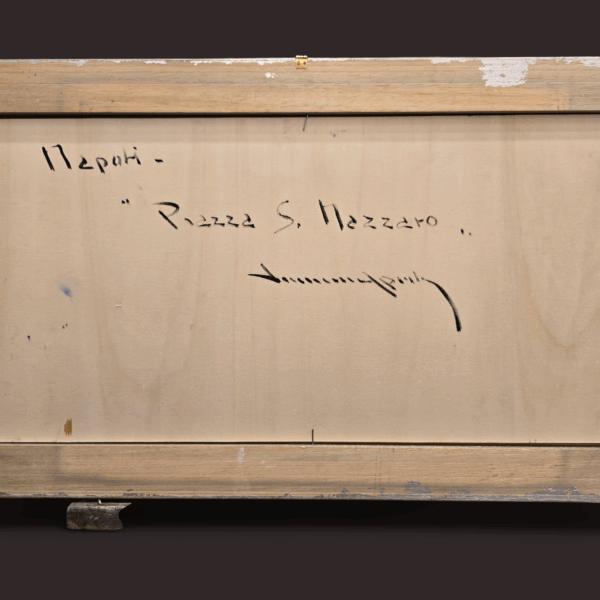 Napoli -
" Piazza S. Nazzaro „